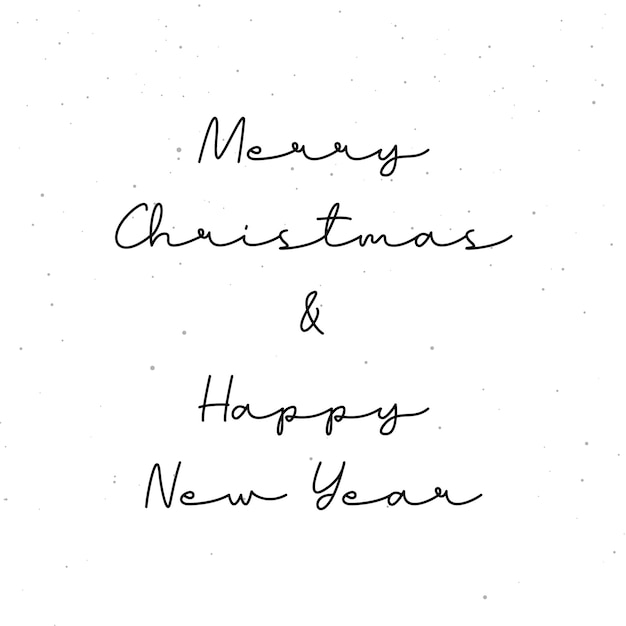 Merry
Christmas
&
Happy
New Year